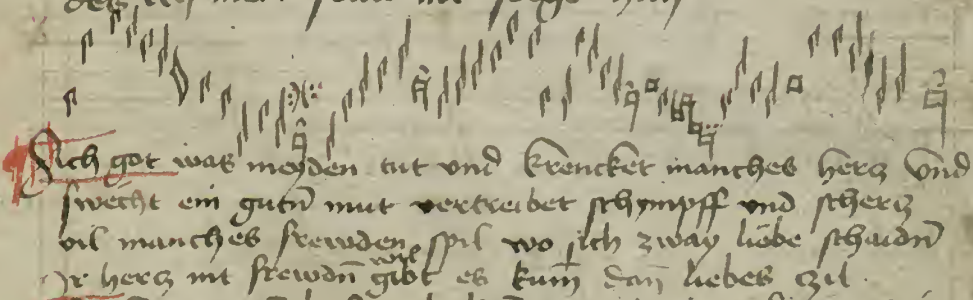 Ach got was meyden tut vnd krencket manches hercz vnd
swecht ein gutñ mut vertreibet schympff vnd schercz
vil manches frewden spil wo sich zway liebe schaidñ
Ir hercz mit frewdñ wil gibt es kum dan liebes czil